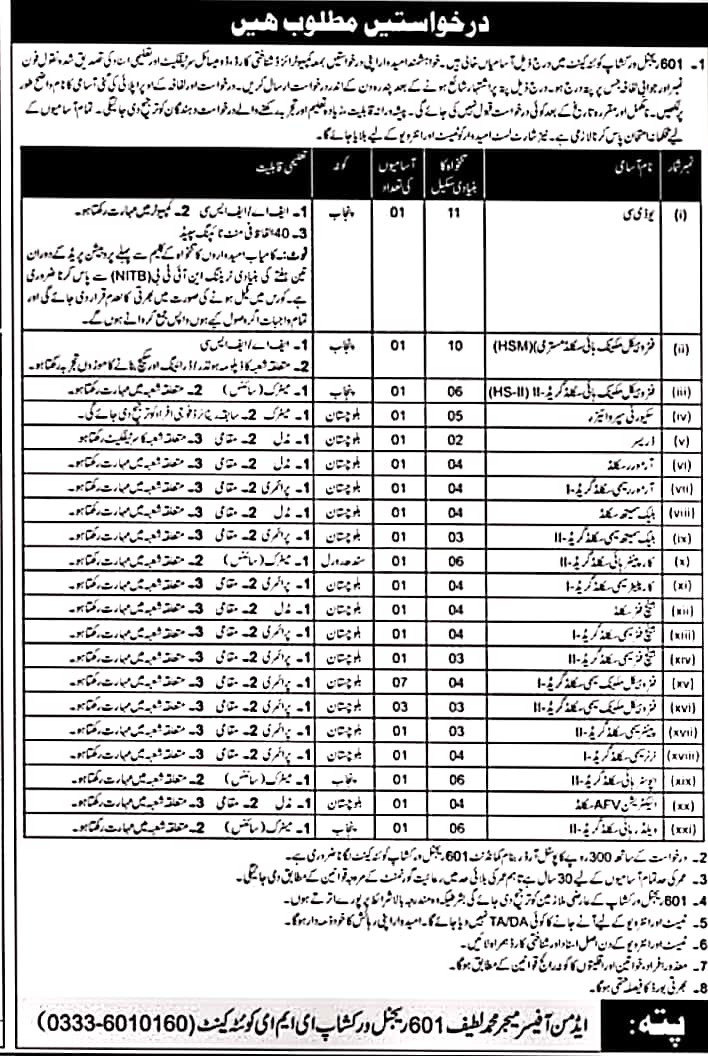 درخواستیں مطلوب ہیں
1- 601 ریجنل ورکشاپ کوئٹہ کینٹ میں درج ذیل آسامیاں خالی ہیں۔ خواہشمند امیدوار اپنی درخواستیں بمعہ کمپیوٹرائزڈ شناختی کارڈ، ڈومیسائل سرٹیفکیٹ اور تعلیمی اسناد کی تصدیق شدہ نقول فون
نمبر اور جوابی لفافہ جس پر پتہ درج ہو۔ درج ذیل پتہ پر اشتہار شائع ہونے کے بعد پندرہ دن کے اندر درخواست ارسال کریں۔ درخواست اور لفافہ کے اوپر اپلائی کی گئی آسامی کا نام واضح طور
پر لکھیں۔ نامکمل اور مقررہ تاریخ کے بعد کوئی درخواست قبول نہیں کی جائے گی۔ پیشہ ورانہ قابلیت زیادہ تعلیم اور تجربہ رکھنے والے درخواست دہندگان کو ترجیح دی جائیگی۔ تمام آسامیوں کے
لیے محکمانہ امتحان پاس کرنا لازمی ہے۔ نیز شارٹ لسٹ امیدوار کو ٹیسٹ اور انٹرویو کے لیے بلایا جائے گا۔
نمبر شمار نام آسامی تنخواہ کا بنیادی سکیل آسامیوں کی تعداد کوٹہ تعلیمی قابلیت
(i) یو ڈی سی 11 01 پنجاب 1- ایف اے/ایف ایس سی 2- کمپیوٹر میں مہارت رکھتا ہو۔
3- 40 الفاظ فی منٹ ٹائپنگ سپیڈ
نوٹ:۔ کامیاب امیدواروں کا تنخواہ کے کلیم سے پہلے پروبیشن پریڈ کے دوران
تین ہفتے کی بنیادی ٹریننگ این آئی ٹی بی (NITB) سے پاس کرنا ضروری
ہے۔ کورس میں فیل ہونے کی صورت میں بھرتی کالعدم قرار دی جائے گی اور
تمام واجبات اگر وصول کیے ہوں واپس جمع کروانے ہوں گے۔
(ii) فٹر وہیکل مکینک ہائی سکلڈ مستری (HSM) 10 01 پنجاب 1- ایف اے/ایف ایس سی
2- متعلقہ شعبہ کا ڈپلومہ ہولڈر/ڈرائنگ اور سکیچ بنانے کا موزوں تجربہ رکھتا ہو۔
(iii) فٹر وہیکل مکینک ہائی سکلڈ گریڈ-II (HS-II) 06 01 پنجاب 1- میٹرک (سائنس) 2- متعلقہ شعبہ میں مہارت رکھتا ہو۔
(iv) سکیورٹی سپروائیزر 05 01 بلوچستان 1- میٹرک 2- سابقہ ریٹائرڈ فوجی افراد کو ترجیح دی جائے گی۔
(v) ڈریسر 02 01 بلوچستان 1- مڈل 2- مقامی 3- متعلقہ شعبہ کا سرٹیفکیٹ رکھتا ہو
(vi) آرمورر سکلڈ 04 01 بلوچستان 1- مڈل 2- مقامی 3- متعلقہ شعبہ میں مہارت رکھتا ہو۔
(vii) آرمورر سیمی سکلڈ گریڈ-I 04 01 بلوچستان 1- پرائمری 2- مقامی 3- متعلقہ شعبہ میں مہارت رکھتا ہو۔
(viii) بلیک سمتھ سکلڈ 04 01 بلوچستان 1- مڈل 2- مقامی 3- متعلقہ شعبہ میں مہارت رکھتا ہو۔
(ix) بلیک سمتھ سیمی سکلڈ گریڈ-II 03 01 بلوچستان 1- پرائمری 2- مقامی 3- متعلقہ شعبہ میں مہارت رکھتا ہو۔
(x) کارپینٹر ہائی سکلڈ گریڈ-II 06 01 سندھ رورل 1- میٹرک (سائنس) 2- متعلقہ شعبہ میں مہارت رکھتا ہو۔
(xi) کارپینٹر سیمی سکلڈ گریڈ-I 04 01 بلوچستان 1- پرائمری 2- مقامی 3- متعلقہ شعبہ میں مہارت رکھتا ہو۔
(xii) بینچ فٹر سکلڈ 04 01 بلوچستان 1- مڈل 2- مقامی 3- متعلقہ شعبہ میں مہارت رکھتا ہو۔
(xiii) بینچ فٹر سیمی سکلڈ گریڈ-I 04 01 بلوچستان 1- پرائمری 2- مقامی 3- متعلقہ شعبہ میں مہارت رکھتا ہو۔
(xiv) بینچ فٹر سیمی سکلڈ گریڈ-II 03 01 بلوچستان 1- پرائمری 2- مقامی 3- متعلقہ شعبہ میں مہارت رکھتا ہو۔
(xv) فٹر وہیکل مکینک سیمی سکلڈ گریڈ-I 04 07 بلوچستان 1- پرائمری 2- مقامی 3- متعلقہ شعبہ میں مہارت رکھتا ہو۔
(xvi) فٹر وہیکل مکینک سیمی سکلڈ گریڈ-II 03 03 بلوچستان 1- پرائمری 2- مقامی 3- متعلقہ شعبہ میں مہارت رکھتا ہو۔
(xvii) پینٹر سیمی سکلڈ گریڈ-II 03 01 بلوچستان 1- پرائمری 2- مقامی 3- متعلقہ شعبہ میں مہارت رکھتا ہو۔
(xviii) ٹرنر سیمی سکلڈ گریڈ-I 04 01 بلوچستان 1- پرائمری 2- مقامی 3- متعلقہ شعبہ میں مہارت رکھتا ہو۔
(xix) ہائی سکلڈ گریڈ-II 06 01 پنجاب 1- میٹرک (سائنس) 2- متعلقہ شعبہ میں مہارت رکھتا ہو۔
(xx) الیکٹریشن AFV سکلڈ 04 01 بلوچستان 1- مڈل 2- مقامی 3- متعلقہ شعبہ میں مہارت رکھتا ہو۔
(xxi) ویلڈر ہائی سکلڈ گریڈ-II 06 01 پنجاب 1- میٹرک (سائنس) 2- متعلقہ شعبہ میں مہارت رکھتا ہو۔
2- درخواست کے ساتھ 300 روپے کا پوسٹل آرڈر بنام کمانڈنٹ 601 ریجنل ورکشاپ کوئٹہ کینٹ لگانا ضروری ہے۔
3- عمر کی حد تمام آسامیوں کے لیے 30 سال ہے تاہم عمر کی بالائی حد میں رعائیت گورنمنٹ کے مروجہ قوانین کے مطابق دی جائیگی۔
4- 601 ریجنل ورکشاپ کے عارضی ملازمین کو ترجیح دی جائے گی بشرطیکہ وہ مندرجہ بالا شرائط پر پورے اترتے ہوں۔
5- ٹیسٹ اور انٹرویو کے لیے آنے جانے کا کوئی TA/DA نہیں دیا جائے گا۔ امیدوار اپنی رہائش کا خود ذمہ دار ہوگا۔
6- ٹیسٹ اور انٹرویو کے دن اصل اسناد اور شناختی کارڈ ہمراہ لائیں۔
7- معذور افراد، خواتین اور اقلیتوں کا کوٹہ رائج قوانین کے مطابق ہوگا۔
8- بھرتی بورڈ کا فیصلہ حتمی ہوگا۔
پتہ: ایڈمن آفیسر میجر محمد لطیف 601 ریجنل ورکشاپ ای ایم ای کوئٹہ کینٹ (0333-6010160)